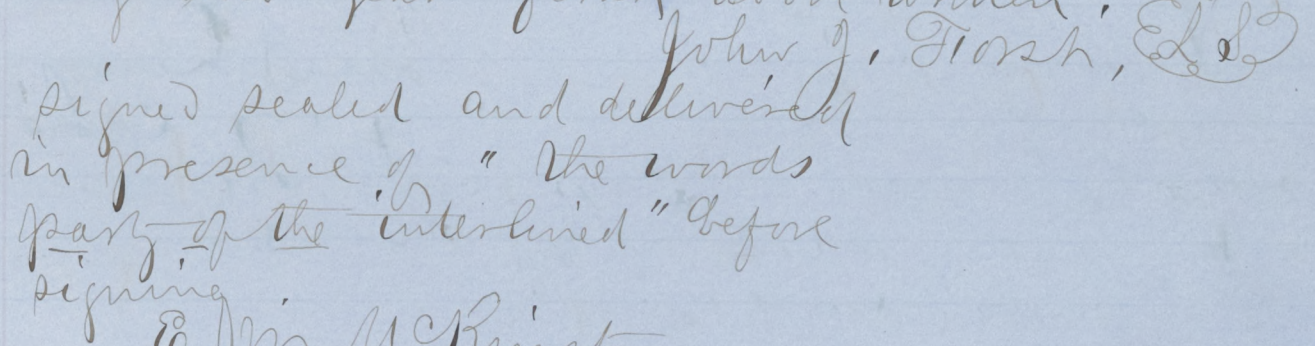 John J. Forsh, L S
signed sealed and delivered
in presence of " the words
party of the interlined " before
signing